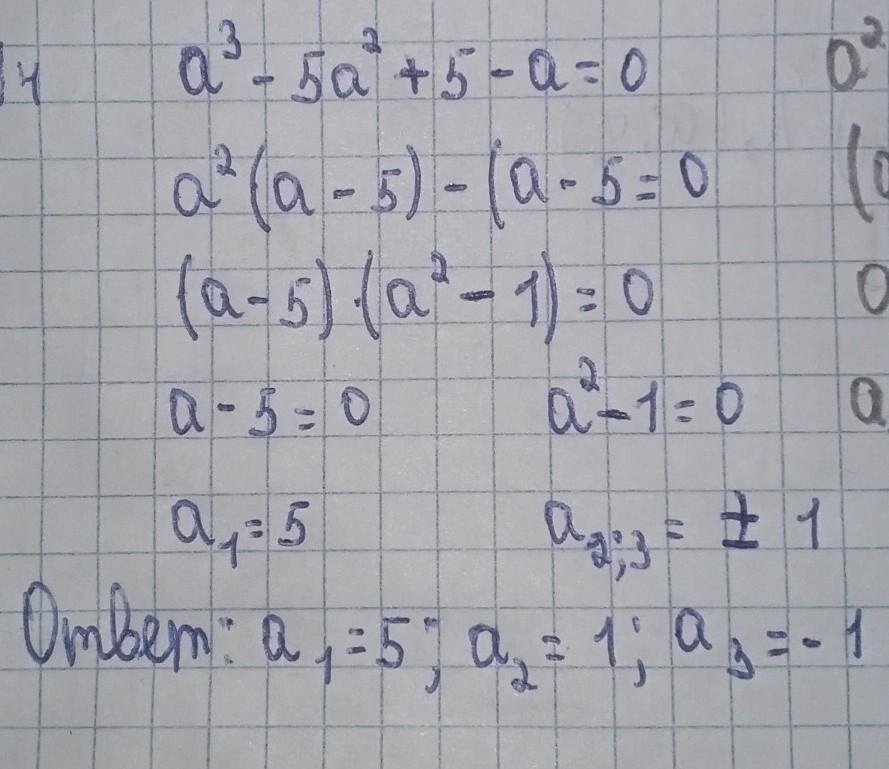 4 a³ - 5a² + 5 - a = 0 a²
a²(a - 5) - (a - 5 = 0 (
(a - 5) · (a² - 1) = 0 0
a - 5 = 0 a² - 1 = 0 a
a₁ = 5 a₂;₃ = ± 1
Ответ: a₁ = 5; a₂ = 1; a₃ = - 1